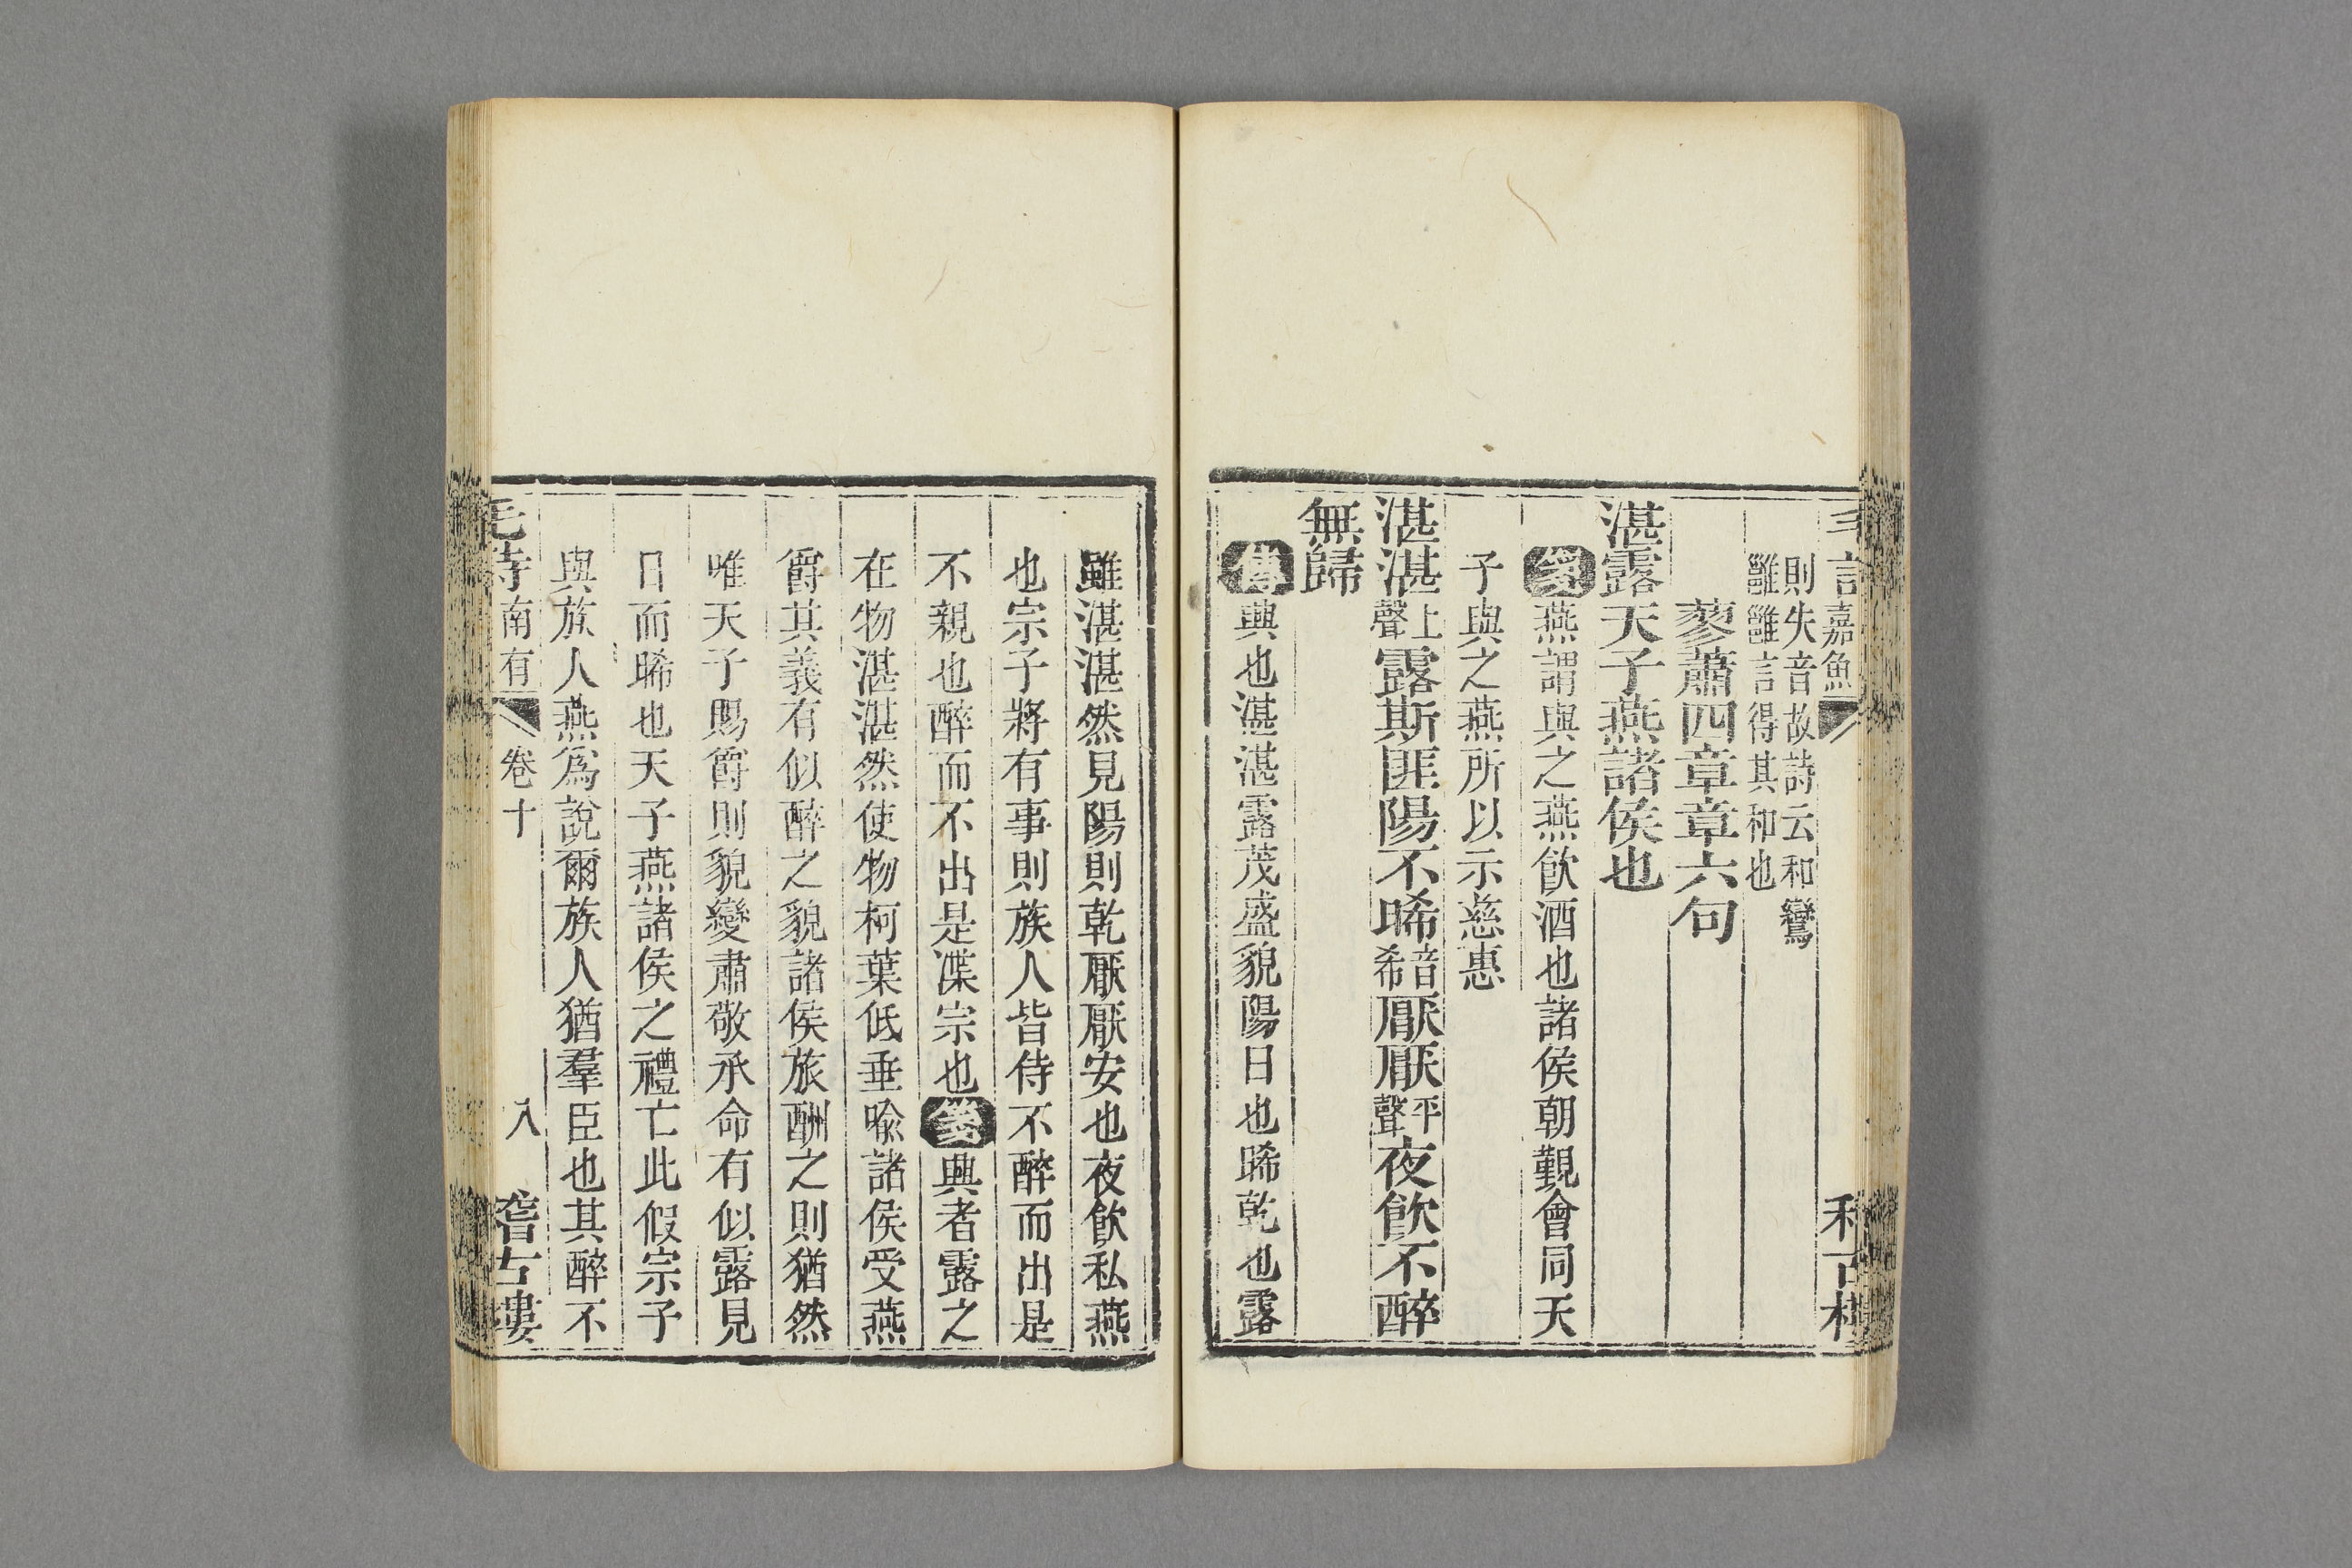 嘉魚
則失音故詩云和鸞
雝雝言得其和也
蓼蕭四章章六句
湛露天子燕諸侯也
箋燕謂與之燕飮酒也諸侯朝覲會同天
子與之燕所以示慈惠
湛湛上聲露斯匪陽不晞音希厭厭平聲夜飮不醉
無歸
傳興也湛湛露茂盛貌陽日也晞乾也露
雖湛湛然見陽則乾厭厭安也夜飮私燕
也宗子將有事則族人皆侍不醉而出是
不親也醉而不出是渫宗也箋興者露之
在物湛湛然使物柯葉低垂喩諸侯受燕
爵其義有似醉之貌諸侯旅酬之則猶然
唯天子賜爵則貌變肅敬承命有似露見
日而晞也天子燕諸侯之禮亡此假宗子
與族人燕爲說爾族人猶羣臣也其醉不
毛詩南有 卷十 八 稽古樓